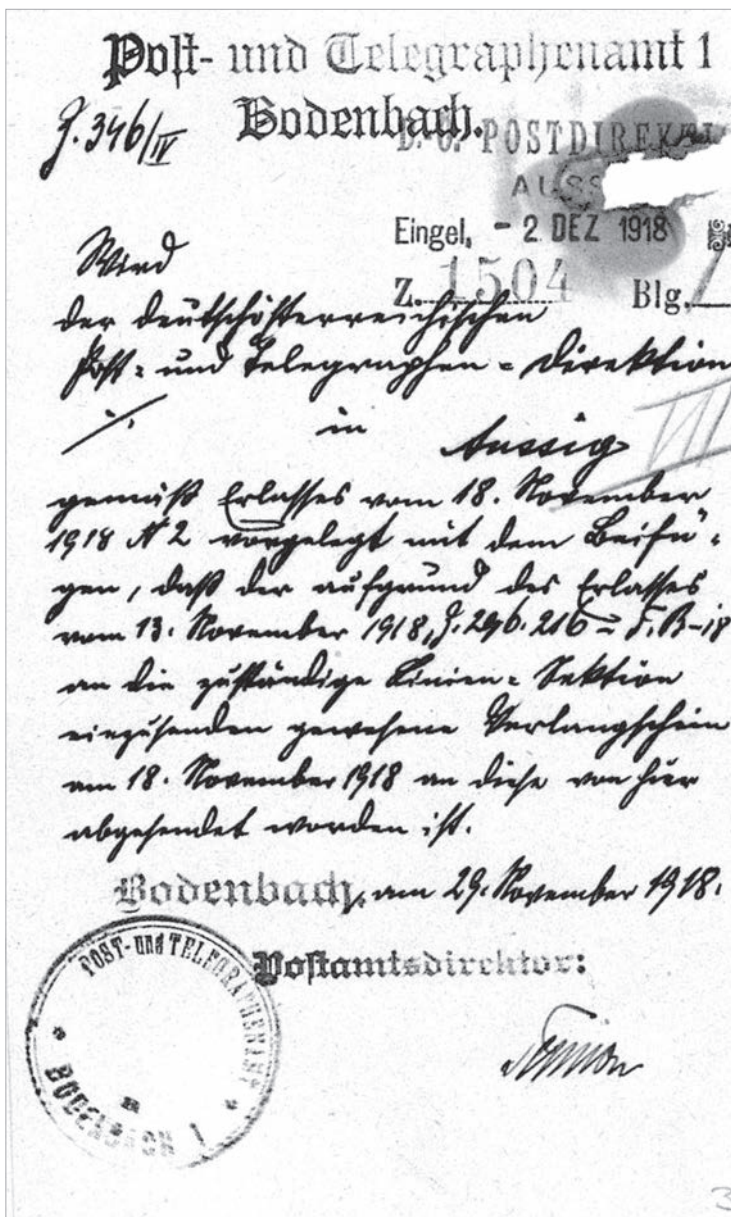 Post- und Telegraphenamt 1
Bodenbach.
Z. 346/IV
D.-Ö. POSTDIREKTI
AUSS
Eingel. - 2 DEZ 1918
Z. 1504 Blg.
Wird
der deutschösterreichischen
Post- und Telegraphen-Direktion
./. in Aussig
VII
gemäß Erlasses vom 18. November
1918 N 2 vorgelegt mit dem Beifü-
gen, daß der aufgrund des Erlasses
vom 13. November 1918, Z. 296.216 - F.B-18
an die zuständige Linien-Sektion
einzusenden gewesene Verlangschein
am 18. November 1918 an diese von hier
abgesendet worden ist.
Bodenbach, am 29. November 1918.
Postamtsdirektor:
POST- UND TELEGRAPHENAMT
BODENBACH 1
3